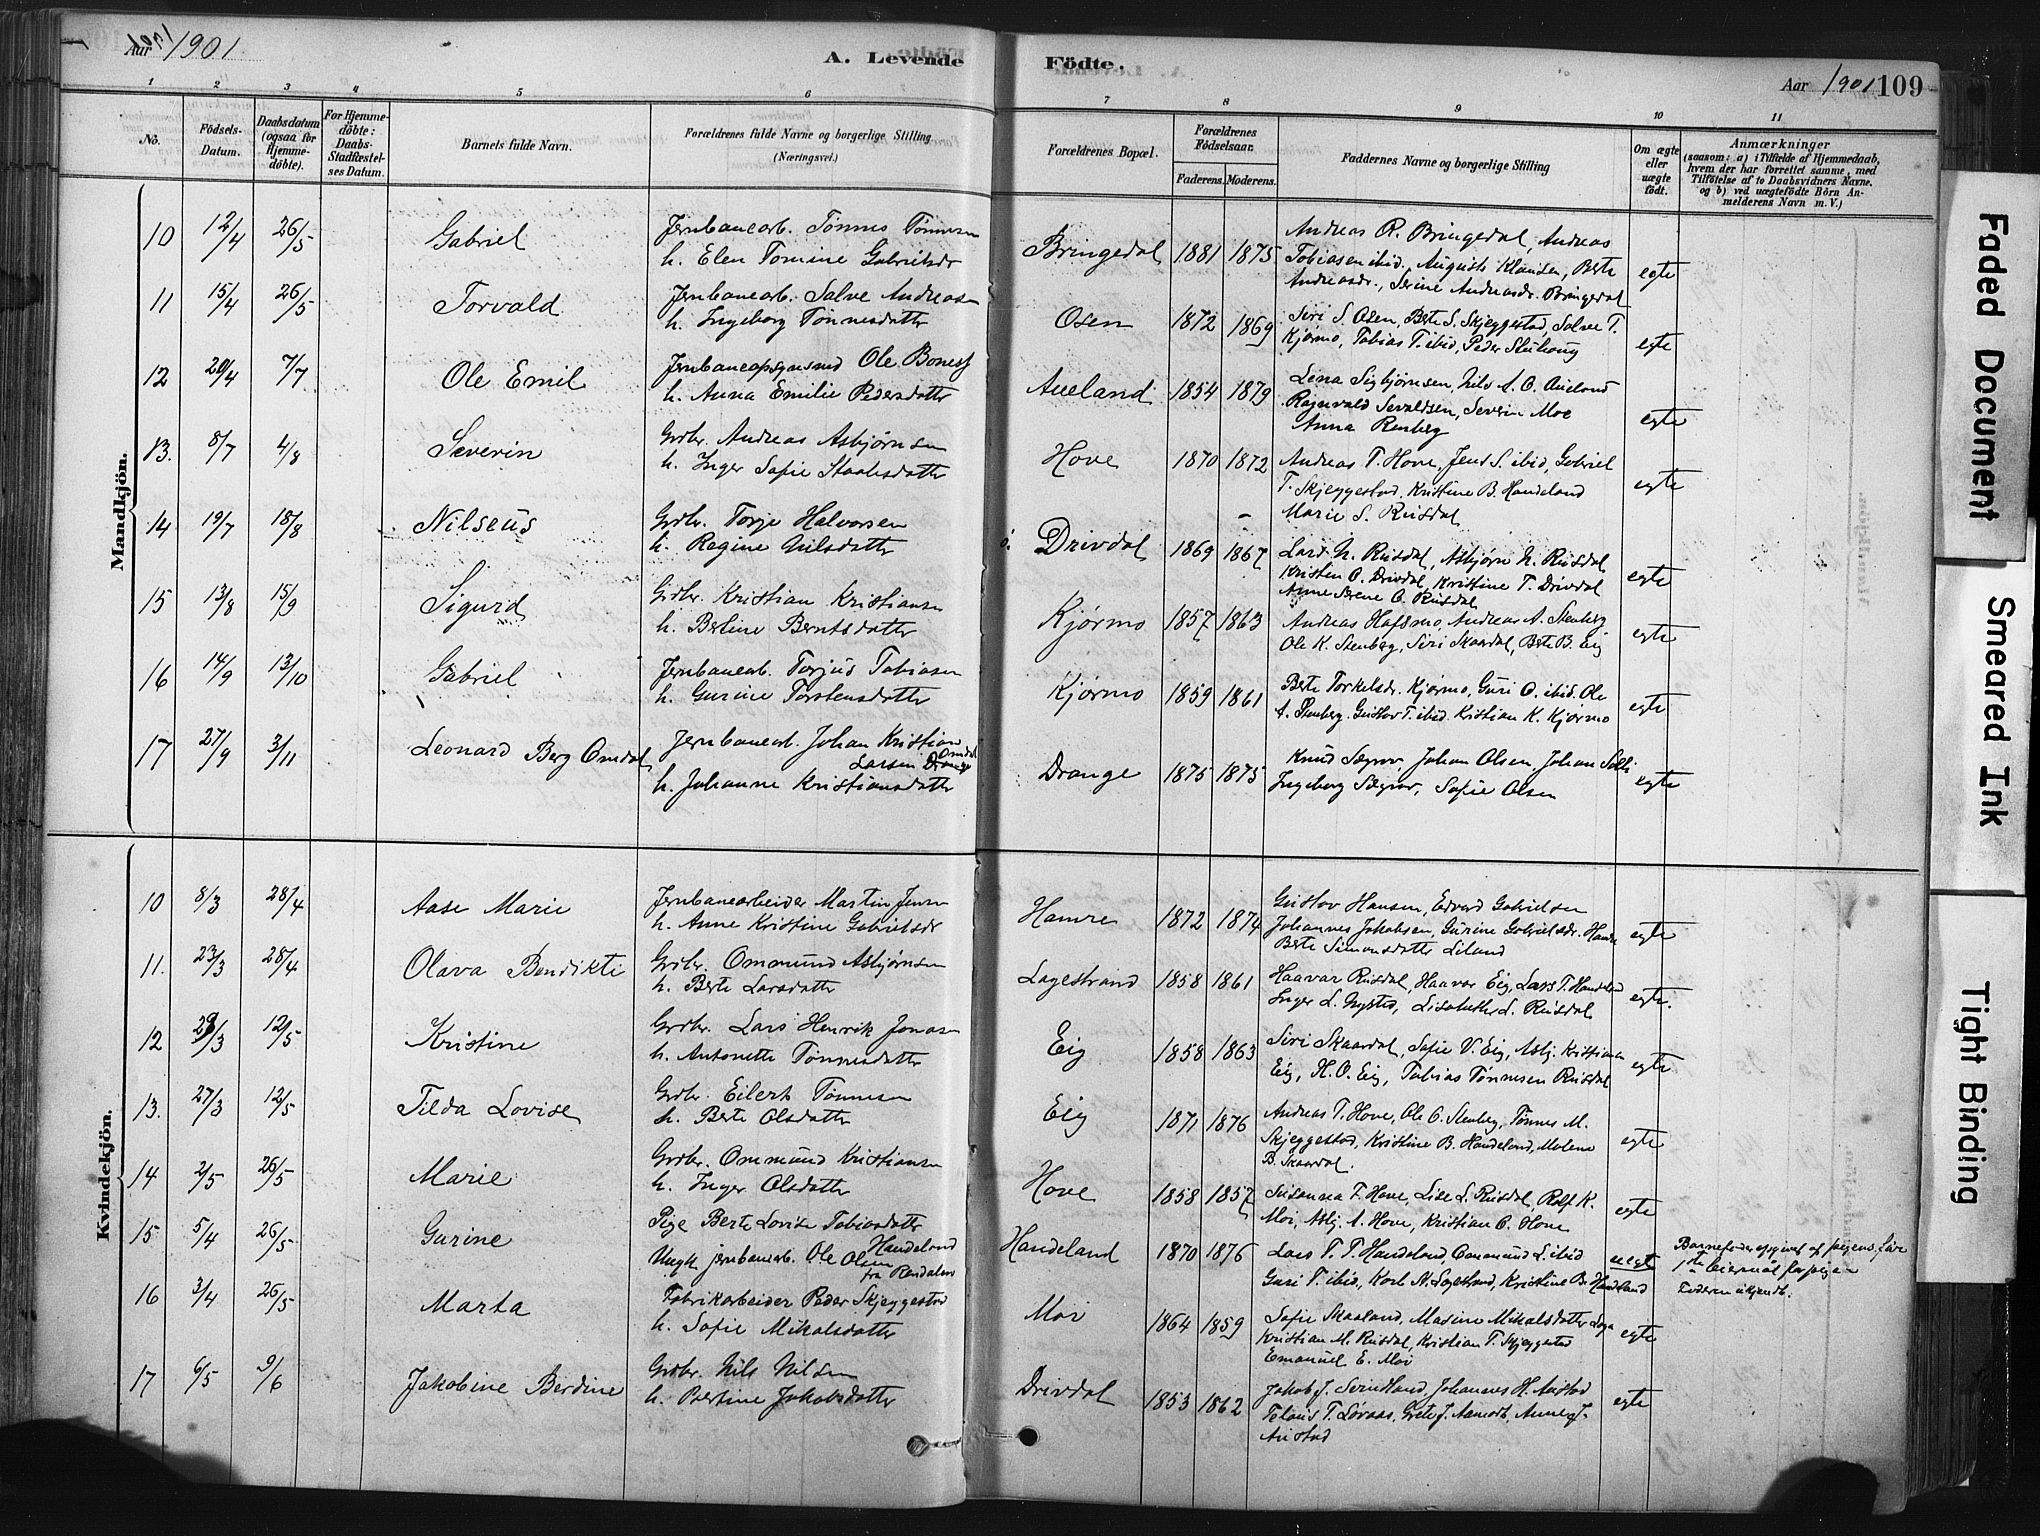 Aar 1901
A. Levende
Födte.
Aar 1901 109
1 2 3 4 5 6 7 8 9 10 11
No.
Födsels-
Datum.
Daabsdatum
(ogsaa for
Hjemme-
döbte).
For Hjemme-
döbte:
Daabs-
Stadfæstel-
ses Datum.
Barnets fulde Navn.
Forældrenes fulde Navne og borgerlige Stilling
(Næringsvei.)
Forældrenes Bopæl.
Forældrenes
Födselsaar.
Faderens. Moderens.
Faddernes Navne og borgerlige Stilling
Om ægte
eller
uægte
födt.
Anmærkninger
(saasom: a) i Tilfælde af Hjemmedaab,
hvem der har forrettet samme, med
Tilföielse af to Daabsvidners Navne.
og b) ved uægtefödte Börn An-
melderens Navn m. V.)
Mandkjön.
10 12/4 26/5 Gabriel Jernbanearb. Tønnes Tønnesen
h. Elen Tomine Gabrielsdr
Bringedal 1881 1875 Andreas R. Bringedal, Andreas
Tobiasen ibid, Augusts Klausen, Berte
Andreasdr., Serine Andreasdr. Bringedal
egte
11 15/4 26/5 Torvald Jernbanearb. Salve Andreasen
h. Ingeborg Tønnesdatter
Osen 1872 1869 Siri S. Osen, Berte S. Skjeggestad, Salve T.
Kjørmo, Tobias T. ibid, Peder Stuhaug
egte
12 20/4 7/7 Ole Emil Jernbaneopsynsmd Ole Boness
h. Anna Emilie Pedersdatter
Aueland 1854 1879 Lena Sigbjørnsen, Nils A. O. Aueland
Ragnvald Sevaldsen, Severin Moe
Anna Renberg
egte
13. 8/7 4/8 Severin Grdbr. Andreas Asbjørnsen
h. Inger Sofie Staalesdatter
Hove 1870 1872 Andreas T. Hove, Jens S. ibid, Gabriel
T. Skjeggestad, Kristine B. Handeland
Marie S. Rusdal
egte
14 19/7 18/8 Nilseus Grdbr. Torje Halvorsen
h. Regine Nilsdatter
ö. Drivdal 1869 1867 Lars N. Rusdal, Asbjørn N. Rusdal
Kristen O. Drivdal, Kristine T. Drivdal
Anne Serene O. Rusdal
egte
15 13/8 15/9 Sigurd Grdbr. Kristian Kristiansen
h. Betine Berntsdatter
Kjørmo 1857 1863 Andreas Hafsmo, Andreas A. Stenberg
Ole K. Stenberg, Siri Skaardal, Berte B. Eig
egte
16 14/9 13/10 Gabriel Jernbanearb. Torjus Tobiasen
h. Gurine Torstensdatter
Kjørmo 1859 1861 Berte Torkelsdr. Kjørmo, Guri O. ibid. Ole
A. Stenberg. Gustav T. ibid. Kristian K. Kjørmo
egte
17 27/9 3/11 Leonard Berg Omdal Jernbanearb. Johan Kristian
Larsen Omdal
h. Johanne Kristiansdatter
Drange 1875 1875 Knud Søgrov, Johan Olsen, Johan Solli
Ingeborg Søgrov, Sofie Olsen
egte
Kvindekjön.
10 8/3 28/4 Aase Marie Jernbanearbeider Martin Jensen
h. Anne Kristine Gabrielsdr
Hamre 1872 1874 Gustav Hansen, Edvard Gabrielsen
Johannes Jakobsen, Gurine Gabrielsdr. Hamre
Berte Simonsdatter Liland
egte
11. 23/3 28/4 Olava Bendikte Grdbr. Ommund Asbjørnsen
h. Berte Larsdatter
Lagestrand 1858 1861 Haavar Rusdal, Haavar Eig, Lars T. Handeland
Inger L. Nysted, Lisabeth L. Rusdal
egte.
12 29/3 12/5 Kristine Grdbr. Lars Henrik Jonasen
h. Antonette Tønnesdatter
Eig 1858 1863 Siri Skaardal, Sofie V. Eig, Asbj. Kristiansen
Eig, H. O. Eig, Tobias Tønnesen Rusdal
egte
13. 27/3 12/5 Tilda Lovise Grdbr. Eilert Tønnesen
h. Berte Olsdatter
Eig 1871 1876 Andreas T. Hove, Ole O. Stenberg, Tønnes M.
Skjeggestad, Kristine B. Handeland, Malene
B. Skaardal.
egte
14 2/5 26/5 Marie Grdbr. Ommund Kristiansen
h. Inger Olsdatter
Hove 1858 1857 Susanna T. Hove, Lise L. Rusdal, Rolf K.
Moi, Asbj. A. Hove, Kristian O. Hove
egte
15 5/4 26/5 Gurine Pige Berte Lovise Tobiasdatter
Handeland
Ungk. jernbanearb. Ole Olsen
fra Rendalen
Handeland 1870 1876 Lars T. T. Handeland, Ommund L. ibid
Guri T. ibid, Karl A. Lagestrand, Kristine B. Handeland
uegte Barnefader opgivet af pigens far
1ste leiermaal for pigen
Faderen ukjendt.
16 3/4 26/5 Marta Fabrikarbeider Peder Skjeggestad
h. Sofie Mikalsdatter
Moi 1864 1859 Sofie Skaaland, Masine Mikalsdatter Loga
Kristian M. Rusdal, Kristian T. Skjeggestad
Emanuel E. Moi
egte
17 6/5 9/6 Jakobine Berdine Grdbr. Nils Nilsen
h. Bertine Jakobsdatter
Drivdal 1853 1862 Jakob J. Svindland, Johannes H. Austad
Telaus T. Løvaas, Grete J. Aamodt, Anne J.
Austad
egte
Faded Document
Smeared Ink
Tight Binding